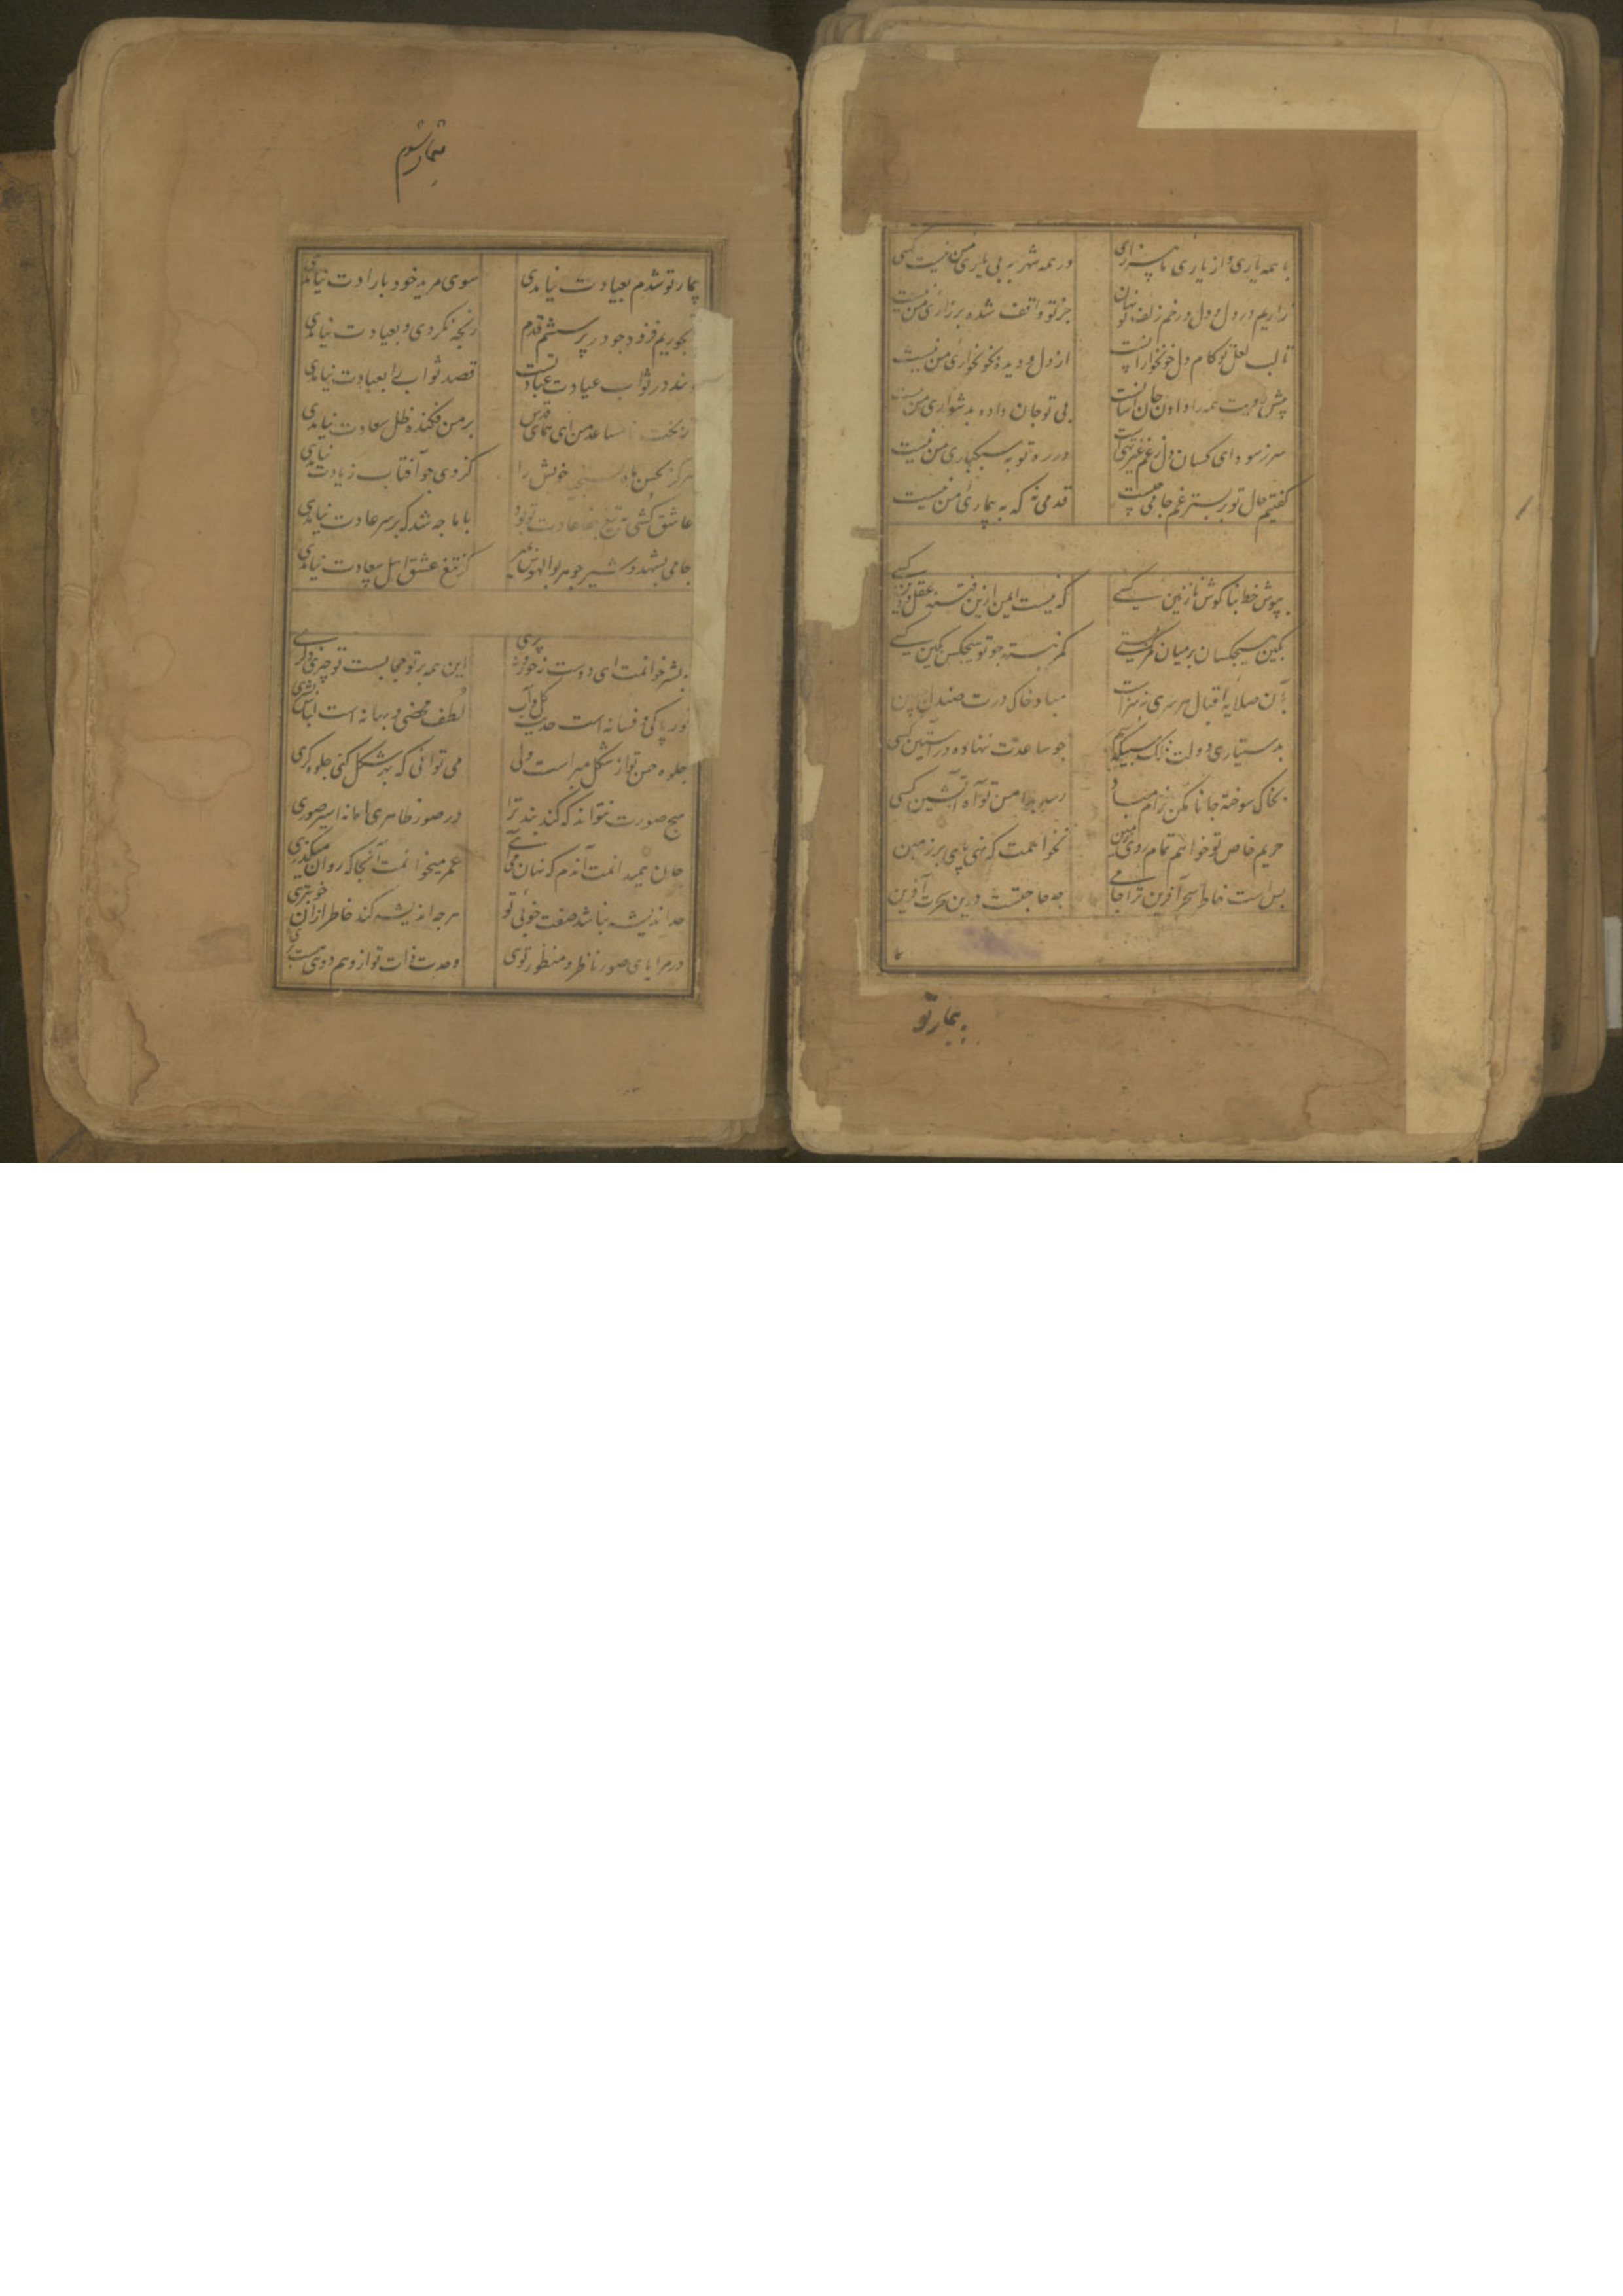 با همه یاری و از یاری ما بیزاری در همه شهر به بی یاری من نیست کسی
زاریم در دل و دل در خم زلف تو نهان جز تو واقف شده بر زاری من نیست
تا لب لعل تو کام دل خونخوارانست از دل و دیده بخونخواری من نیست
پیش رویت همه را دادن جان آسانست بی تو جان داده بدشواری من
سر ز سودای کسان دل ز غم غیر تهیست در ره تو به سبکباری من نیست
گفتیم حال تو بر بستر غم جامی چیست قدمی نه که به بیماری من نیست
بپوش خط بناگوش نازنین کسی که نیست ایمن ازین فتنه عقل و دین کسی
بکین هیچکسان بر میان کمر کستی کمر نبسته چو تو هیچکس بکین کسی
بر آن صلایه اقبال هر سری نه سزاست مباد خاک درت صندل جبین
بدستیاری دولت نه سیمگر چو ساعدت ننهاده در آستین کسی
بخاک سوخته جانان مکن خرام مباد رسد بدامن تو آه آتشین کسی
حریم خاص تو خواهم تمام روی زمین نخواهمت که نهی پای بر زمین
بس است خاطر سحرآفرین ترا جامی چه حاجتست درین سحرت آفرین
بیمار تو
بیمار تو شدم بعیادت نیامدی سوی مرید خود بارادت نیامدی
رنجوریم فزود چو در پرسشم قدم رنجه نکردی و بعیادت نیامدی
قصد ثواب را بعبادت نیامدی
بخت نامساعد من ای همای قدس بر من فکنده ظل سعادت نیامدی
هرگز بحسن ماه نسنجید خویش را کز وی چو آفتاب زیادت نیامدی
عاشق کشی به تیغ جفا عادت تو بود با ما چه شد که بر سر عادت نیامدی
جامی بشهد و شیر چو هر بوالهوس بمیر کز تیغ عشق اهل سعادت نیامدی
بشر خوانمت ای دوست نه حور و نه پری این همه بر تو حجابست تو چیز دگری
نور پاکی و فسانه است حدیث گل و آب لطف محضی و بهانه است لباس بشری
جلوه حسن تو از شکل مبراست ولی می توانی که بهر شکل کنی جلوه گری
هیچ صورت نتواند که کند بند ترا در صور ظاهری اما نه اسیر صوری
جان همی دانمت آندم که نهان می آئی عمر میخوانمت آنجا که روان میگذری
حد اندیشه نباشد صفت خوبی تو هرچه اندیشه کند خاطر از آن خوبتری
در مرایای صور ناظر و منظور توئی وحدت ذات تو از وهم دوئی هست بری